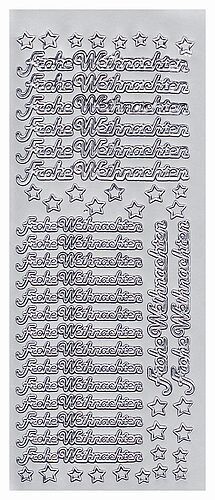 Frohe Weihnachten
Frohe Weihnachten
Frohe Weihnachten
Frohe Weihnachten
Frohe Weihnachten
Frohe Weihnachten
Frohe Weihnachten
Frohe Weihnachten
Frohe Weihnachten
Frohe Weihnachten
Frohe Weihnachten
Frohe Weihnachten
Frohe Weihnachten
Frohe Weihnachten
Frohe Weihnachten
Frohe Weihnachten
Frohe Weihnachten
Frohe Weihnachten
Frohe Weihnachten
Frohe Weihnachten
Frohe Weihnachten
Frohe Weihnachten